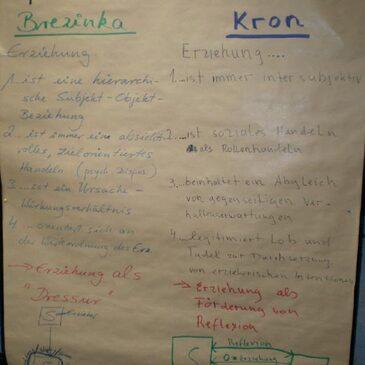 Brezinka
Erziehung
1. ist eine hierarchi-
sche Subjekt-Objekt-
Beziehung
2. ..ist immer eine absichts-
volles, zielorientiertes
Handeln (psych. Dispos)
3 ...ist ein Ursache-
Wirkungsverhältnis
4. ..orientiert sich an
der
→ Erziehung als
"Dressur"
S
Kron
Erziehung ....
1. ...ist immer intersubjektiv
2. ...ist soziales Handeln
als Rollenhandeln
3. ...beinhaltet ein Abgleich
von gegenseitigen Ver-
haltenserwartungen
4. ...legitimiert Lob und
Tadel zur Durchsetzung
von erzieherischen Intentionen
→ Erziehung als
Förderung von
Reflexion
S
Reflexion
Erziehung